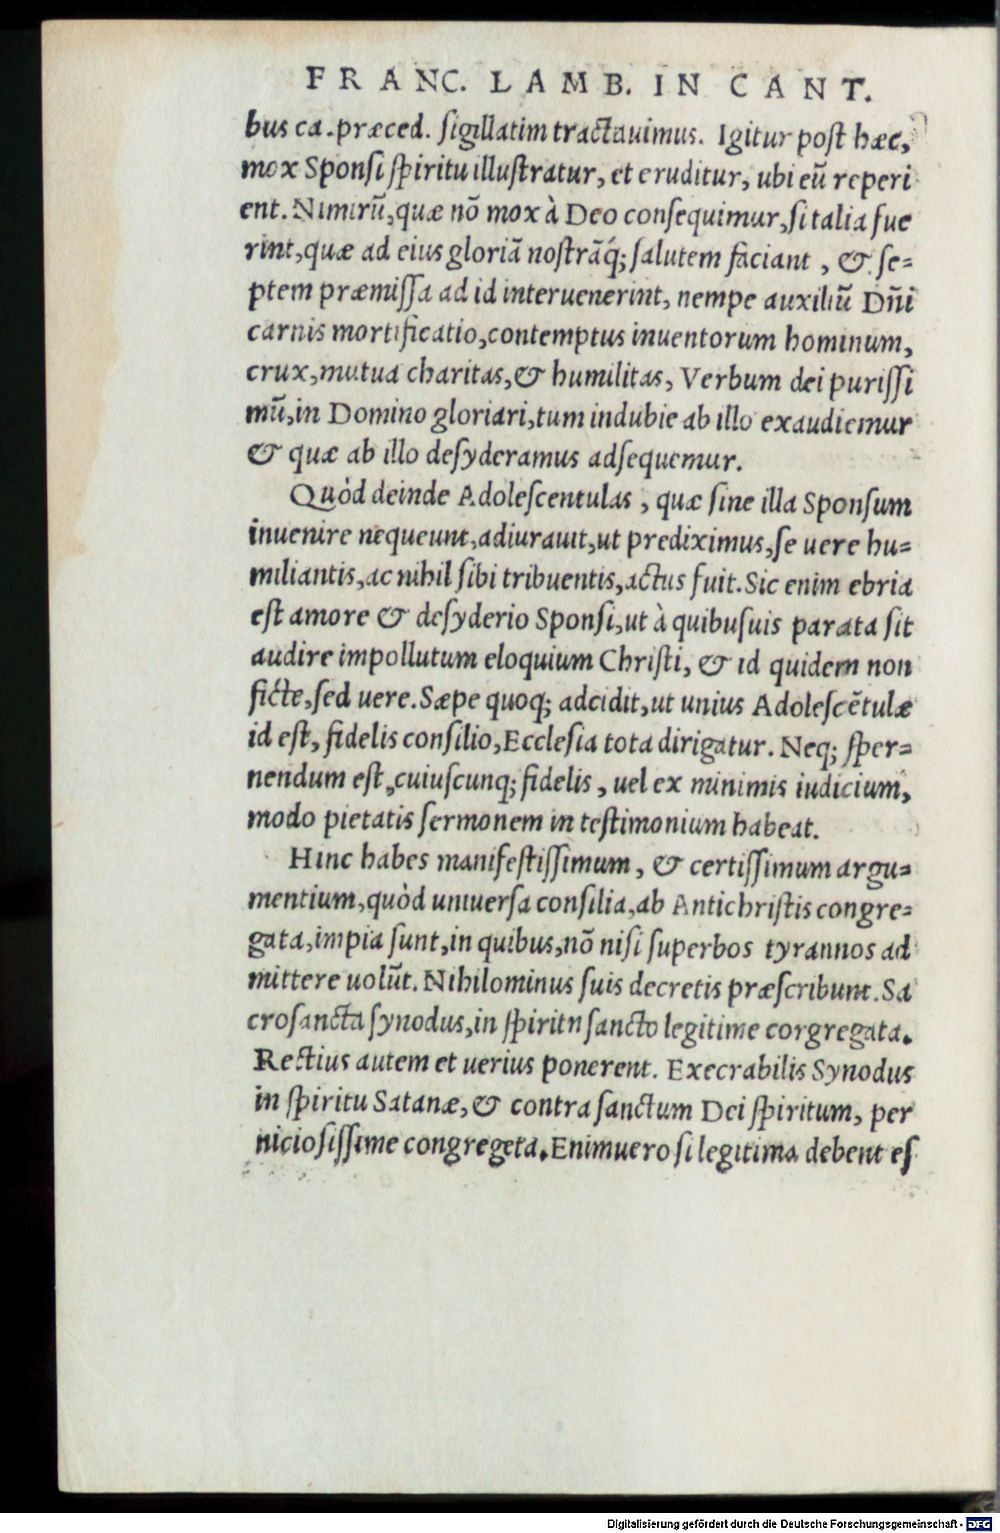 FRANC. LAMB. IN CANT.
bus ca. præced. ſigillatim tractauimus. Igitur poſt hæc,
mox Sponſi ſpiritu illuſtratur, et eruditur, ubi eū reperi
ent. Nimirū, quæ nō mox à Deo conſequimur, ſi talia fue
rint, quæ ad eius gloriā noſtrāq́; ſalutem faciant, & ſe=
ptem præmiſſa ad id interuenerint, nempe auxiliū Dn̄i
carnis mortificatio, contemptus inuentorum hominum,
crux, mutua charitas, & humilitas, Verbum dei puriſſi
mū, in Domino gloriari, tum indubie ab illo exaudiemur
& quæ ab illo deſyderamus adſequemur.
Quòd deinde Adoleſcentulas, quæ ſine illa Sponſum
inuenire nequeunt, adiurauit, ut prediximus, ſe uere hu=
miliantis, ac nihil ſibi tribuentis, actus fuit. Sic enim ebria
eſt amore & deſyderio Sponſi, ut à quibuſuis parata ſit
audire impollutum eloquium Chriſti, & id quidem non
ficte, ſed uere. Sæpe quoq; adcidit, ut unius Adoleſcētulæ
id eſt, fidelis conſilio, Eccleſia tota dirigatur. Neq; ſper=
nendum eſt, cuiuſcunq; fidelis, uel ex minimis iudicium,
modo pietatis ſermonem in teſtimonium habeat.
Hinc habes manifeſtiſſimum, & certiſſimum argu=
mentium, quòd uniuerſa conſilia, ab Antichriſtis congre=
gata, impia ſunt, in quibus, nō niſi ſuperbos tyrannos ad
mittere uolūt. Nihilominus ſuis decretis præſcribunt. Sa
croſancta ſynodus, in ſpiritn ſancto legitime corgregata.
Rectius autem et uerius ponerent. Execrabilis Synodus
in ſpiritu Satanæ, & contra ſanctum Dei ſpiritum, per
nicioſiſſime congregeta. Enimuero ſi legitima debent eſ
Digitalisierung gefördert durch die Deutsche Forschungsgemeinschaft - DFG